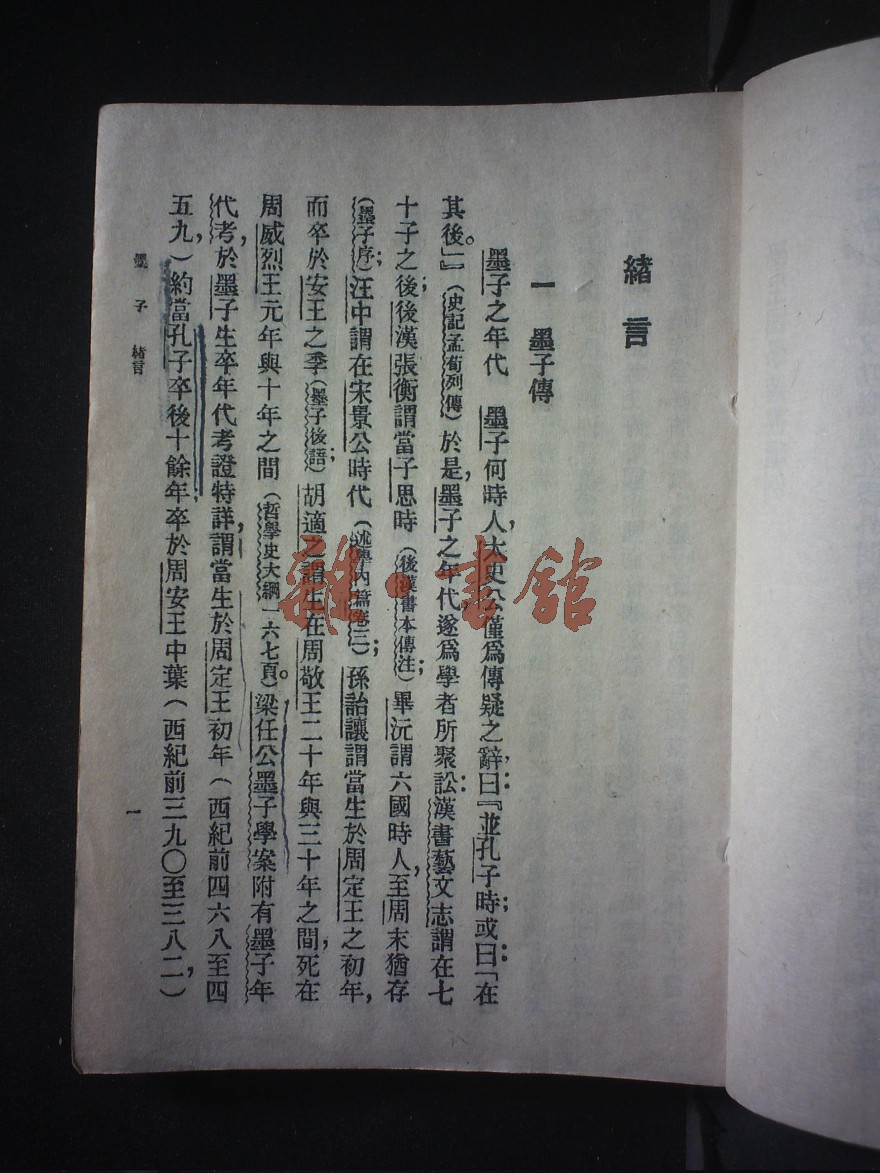 緒言
一　墨子傳
墨子之年代　墨子何時人，太史公僅爲傳疑之辭，曰：『並孔子時；或曰：「在
其後。」』（史記孟荀列傳）於是，墨子之年代，遂爲學者所聚訟：漢書藝文志謂在七
十子之後；後漢張衡謂當子思時（後漢書本傳注）；畢沅謂六國時人，至周末猶存
（墨子序）；汪中謂在宋景公時代（述學內篇卷三）；孫詒讓謂當生於周定王之初年，
而卒於安王之季（墨子後語）；胡適之謂生在周敬王二十年與三十年之間，死在
周威烈王元年與十年之間（哲學史大綱一六七頁）。梁任公墨子學案附有墨子年
代考，於墨子生卒年代考證特詳，謂當生於周定王初年（西紀前四六八至四
五九，）約當孔子卒後十餘年，卒於周安王中葉（西紀前三九〇至三八二，）
墨子　緒言
一
雜·書館